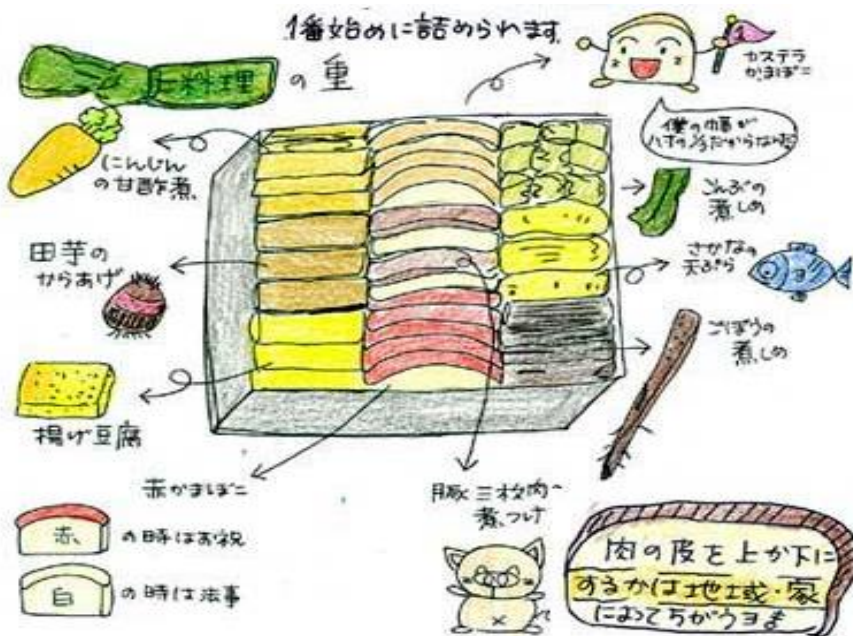 1番始めに詰められます
料理
の重
カステラ
かまぼこ
僕の幅が
ハコの1/3だからなんだ
にんじん
の甘酢煮
こんぶの
煮しめ
田芋の
からあげ
さかなの
天ぷら
ごぼうの
煮しめ
揚げ豆腐
赤かまぼこ
豚三枚肉
煮つけ
赤
の時はお祝
白
の時は法事
肉の皮を上か下に
するかは地域・家
によってちがうヨ